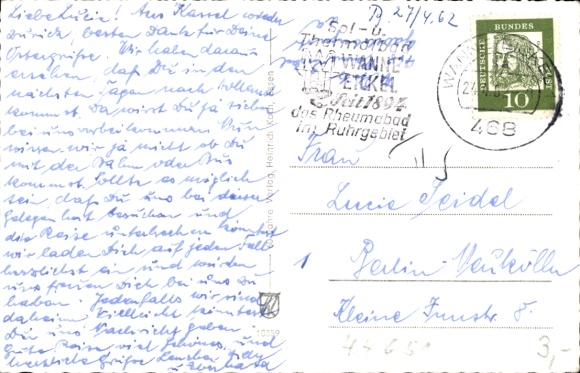 Liebe Luzie! Aus Kassel wieder
zurück, besten Dank für Deine
Ostergrüße. Wir haben daraus
ersehen daß Du in den
nächsten Tagen nach
kommst. Da wirst Du ja sicher
bei uns vorbeikommen. Nun
wissen wir ja nicht ob Du
mit der Bahn oder Bus
kommst. Sollte es möglich
sein, daß Du uns bei dieser
Gelegenheit besuchen und
die Reise unterbrechen könntest
wir laden Dich auf jeden Fall
herzlichst ein und würden
uns freuen Dich bei uns zu
haben. Jedenfalls wir sind
daheim. Vielleicht könntest
Du uns Nachricht geben.
Gute Reise viel Schönes, und
herzliche Grüße
u. Eberhard
27/4.62
Sol- u.
Thermalbad
WANNE-
EICKEL
Seit 1894
das Rheumabad
im Ruhrgebiet
WANNE-EICKEL
468
DEUTSCHE BUNDESPOST
10
Frau
Lucie Seidel
1 Berlin-Neukölln
Kleine Innstr. 8.
Verlag, Heinrich Koch, Essen
3,-